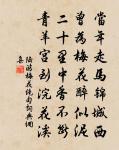 當年走馬錦城西
曾為梅花醉似泥
二十里中香不斷
青羊宮到浣花溪
陸游梅花絕句詞典網